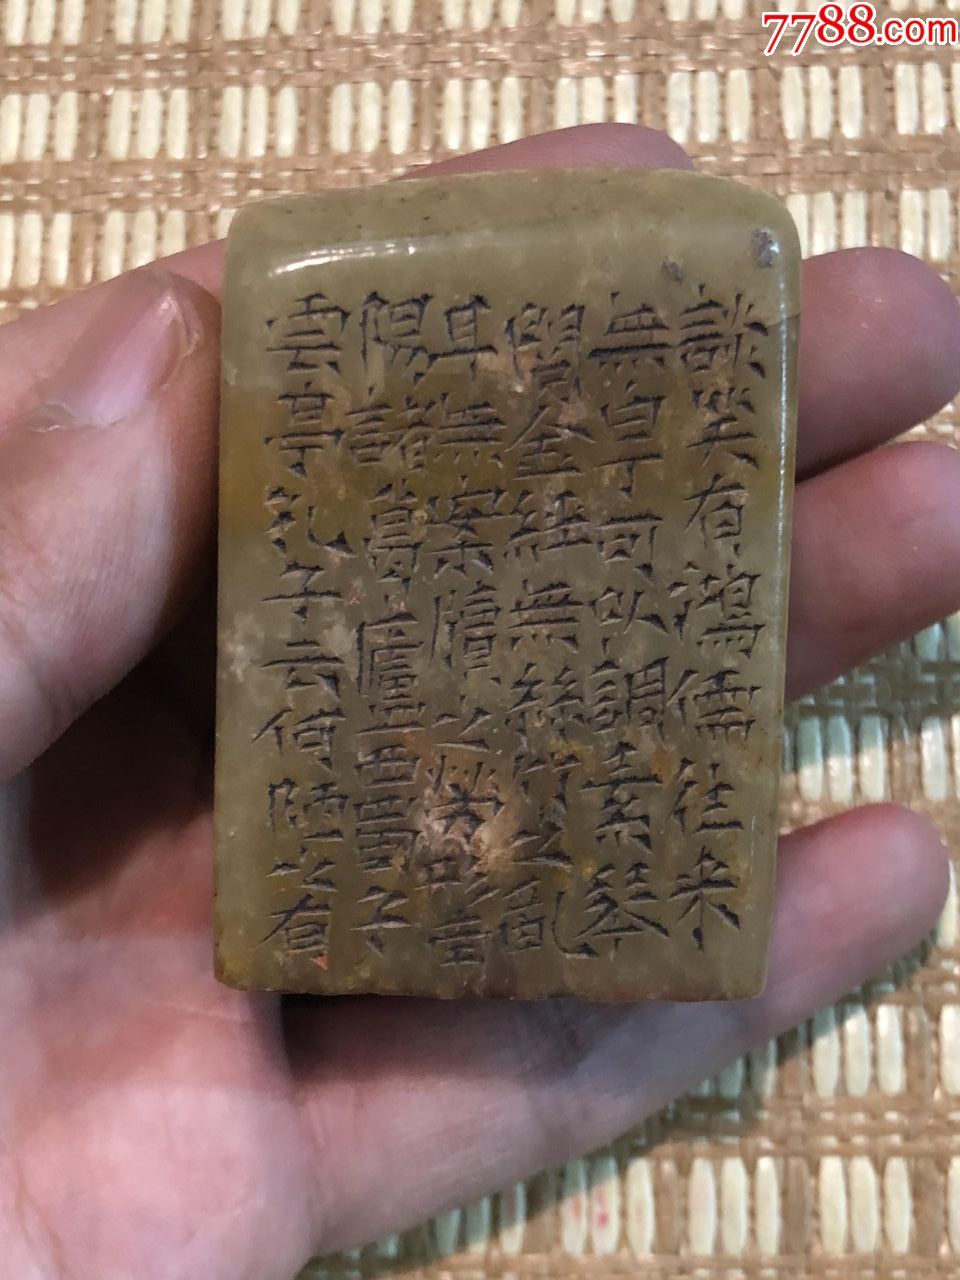 談笑有鴻儒往来
無白丁可以調素琴
閱金經無絲竹之亂
耳無案牘之勞形南
陽諸葛廬西蜀子
雲亭孔子云何陋之有
7788.com